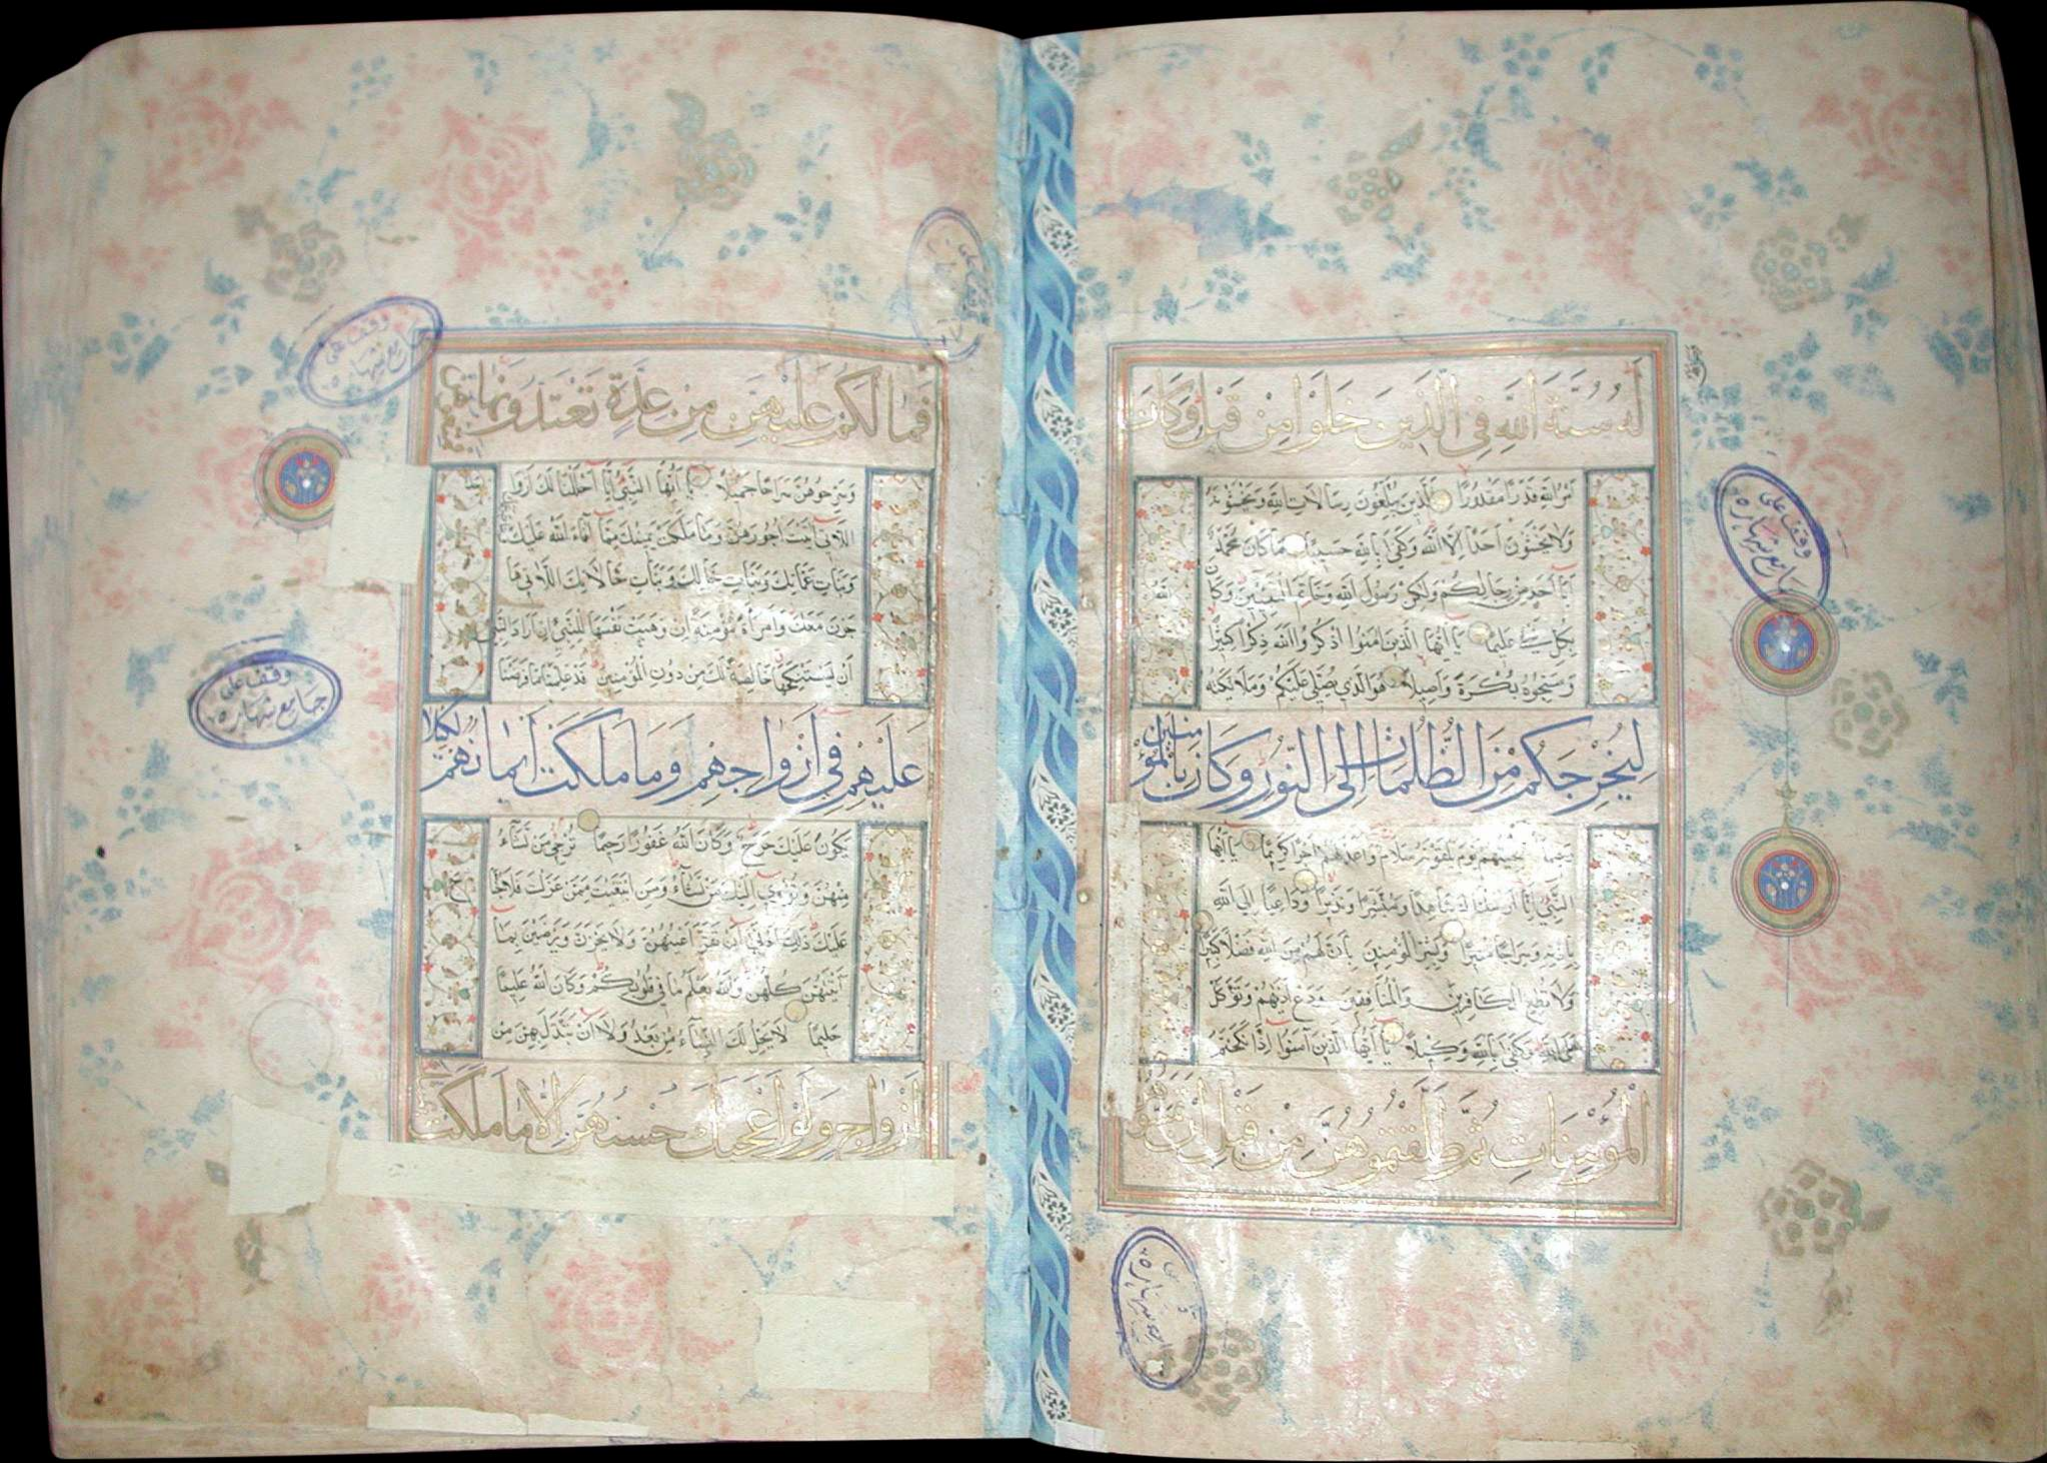 لَهُ سُنَّةَ اللَّهِ فِي الَّذِينَ خَلَوْا مِنْ قَبْلُ وَكَانَ
أَمْرُ اللَّهِ قَدَرًا مَقْدُورًا الَّذِينَ يُبَلِّغُونَ رِسَالَاتِ اللَّهِ وَيَخْشَوْنَهُ
وَلَا يَخْشَوْنَ أَحَدًا إِلَّا اللَّهَ وَكَفَى بِاللَّهِ حَسِيبًا مَا كَانَ مُحَمَّدٌ
أَبَا أَحَدٍ مِنْ رِجَالِكُمْ وَلَكِنْ رَسُولَ اللَّهِ وَخَاتَمَ النَّبِيِّينَ وَكَانَ اللَّهُ
بِكُلِّ شَيْءٍ عَلِيمًا يَا أَيُّهَا الَّذِينَ آمَنُوا اذْكُرُوا اللَّهَ ذِكْرًا كَثِيرًا
وَسَبِّحُوهُ بُكْرَةً وَأَصِيلًا هُوَ الَّذِي يُصَلِّي عَلَيْكُمْ وَمَلَائِكَتُهُ
لِيُخْرِجَكُمْ مِنَ الظُّلُمَاتِ إِلَى النُّورِ وَكَانَ بِالْمُؤْمِنِينَ
رَحِيمًا تَحِيَّتُهُمْ يَوْمَ يَلْقَوْنَهُ سَلَامٌ وَأَعَدَّ لَهُمْ أَجْرًا كَرِيمًا يَا أَيُّهَا
النَّبِيُّ إِنَّا أَرْسَلْنَاكَ شَاهِدًا وَمُبَشِّرًا وَنَذِيرًا وَدَاعِيًا إِلَى اللَّهِ
بِإِذْنِهِ وَسِرَاجًا مُنِيرًا وَبَشِّرِ الْمُؤْمِنِينَ بِأَنَّ لَهُمْ مِنَ اللَّهِ فَضْلًا كَبِيرًا
وَلَا تُطِعِ الْكَافِرِينَ وَالْمُنَافِقِينَ وَدَعْ أَذَاهُمْ وَتَوَكَّلْ
عَلَى اللَّهِ وَكَفَى بِاللَّهِ وَكِيلًا يَا أَيُّهَا الَّذِينَ آمَنُوا إِذَا نَكَحْتُمُ
الْمُؤْمِنَاتِ ثُمَّ طَلَّقْتُمُوهُنَّ مِنْ قَبْلِ أَنْ تَمَسُّوهُنَّ
وقف على
جامع شهاره
فَمَا لَكُمْ عَلَيْهِنَّ مِنْ عِدَّةٍ تَعْتَدُّونَهَا فَمَتِّعُوهُنَّ
وَسَرِّحُوهُنَّ سَرَاحًا جَمِيلًا يَا أَيُّهَا النَّبِيُّ إِنَّا أَحْلَلْنَا لَكَ أَزْوَاجَكَ
اللَّاتِي آتَيْتَ أُجُورَهُنَّ وَمَا مَلَكَتْ يَمِينُكَ مِمَّا أَفَاءَ اللَّهُ عَلَيْكَ
وَبَنَاتِ عَمِّكَ وَبَنَاتِ عَمَّاتِكَ وَبَنَاتِ خَالِكَ وَبَنَاتِ خَالَاتِكَ اللَّاتِي هَا
جَرْنَ مَعَكَ وَامْرَأَةً مُؤْمِنَةً إِنْ وَهَبَتْ نَفْسَهَا لِلنَّبِيِّ إِنْ أَرَادَ النَّبِيُّ
أَنْ يَسْتَنْكِحَهَا خَالِصَةً لَكَ مِنْ دُونِ الْمُؤْمِنِينَ قَدْ عَلِمْنَا مَا فَرَضْنَا
عَلَيْهِمْ فِي أَزْوَاجِهِمْ وَمَا مَلَكَتْ أَيْمَانُهُمْ لِكَيْلَا
يَكُونَ عَلَيْكَ حَرَجٌ وَكَانَ اللَّهُ غَفُورًا رَحِيمًا تُرْجِي مَنْ تَشَاءُ
مِنْهُنَّ وَتُؤْوِي إِلَيْكَ مَنْ تَشَاءُ وَمَنِ ابْتَغَيْتَ مِمَّنْ عَزَلْتَ فَلَا جُنَاحَ
عَلَيْكَ ذَلِكَ أَدْنَى أَنْ تَقَرَّ أَعْيُنُهُنَّ وَلَا يَحْزَنَّ وَيَرْضَيْنَ بِمَا
آتَيْتَهُنَّ كُلُّهُنَّ وَاللَّهُ يَعْلَمُ مَا فِي قُلُوبِكُمْ وَكَانَ اللَّهُ عَلِيمًا
حَلِيمًا لَا يَحِلُّ لَكَ النِّسَاءُ مِنْ بَعْدُ وَلَا أَنْ تَبَدَّلَ بِهِنَّ مِنْ
أَزْوَاجٍ وَلَوْ أَعْجَبَكَ حُسْنُهُنَّ إِلَّا مَا مَلَكَتْ
وقف على
جامع شهاره
وقف على
جامع شهاره